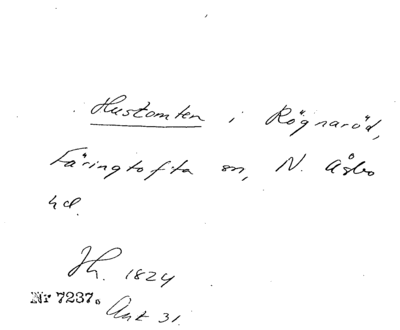 Hustomten i Rögnaröd,
Färingtofta sn, N. Åsbo
hd.
Jh. 1824
Nr 7237.
Ant 31.